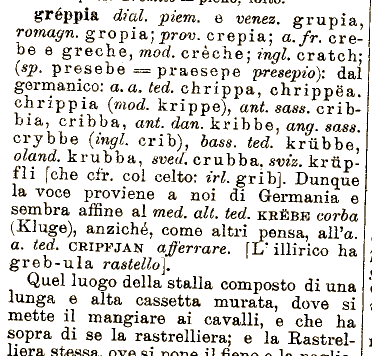 gréppia dial. piem. e venez. grupia,
romagn. gropia; prov. crepia; a. fr. cre-
be e greche, mod. crèche; ingl. cratch;
(sp. presebe = praesepe presepio): dal
germanico: a. a. ted. chrippa, chrippëa.
chrippia (mod. krippe), ant. sass. crib-
bia, cribba, ant. dan. kribbe, ang. sass.
crybbe (ingl. crib), bass. ted. krübbe,
oland. krubba, sved. crubba. sviz. krüp-
fli [che cfr. col celto: irl. grib]. Dunque
la voce proviene a noi di Germania e
sembra affine al med. alt. ted. KRËBE corba
(Kluge), anziché, come altri pensa, all'a.
a. ted. CRIPFJAN afferrare. [L' illirico ha
greb-ula rastello].
Quel luogo della stalla composto di una
lunga e alta cassetta murata, dove si
mette il mangiare ai cavalli, e che ha
sopra di se la rastrelliera; e la Rastrel-
liera stessa, ove si pone il fieno e la paglia